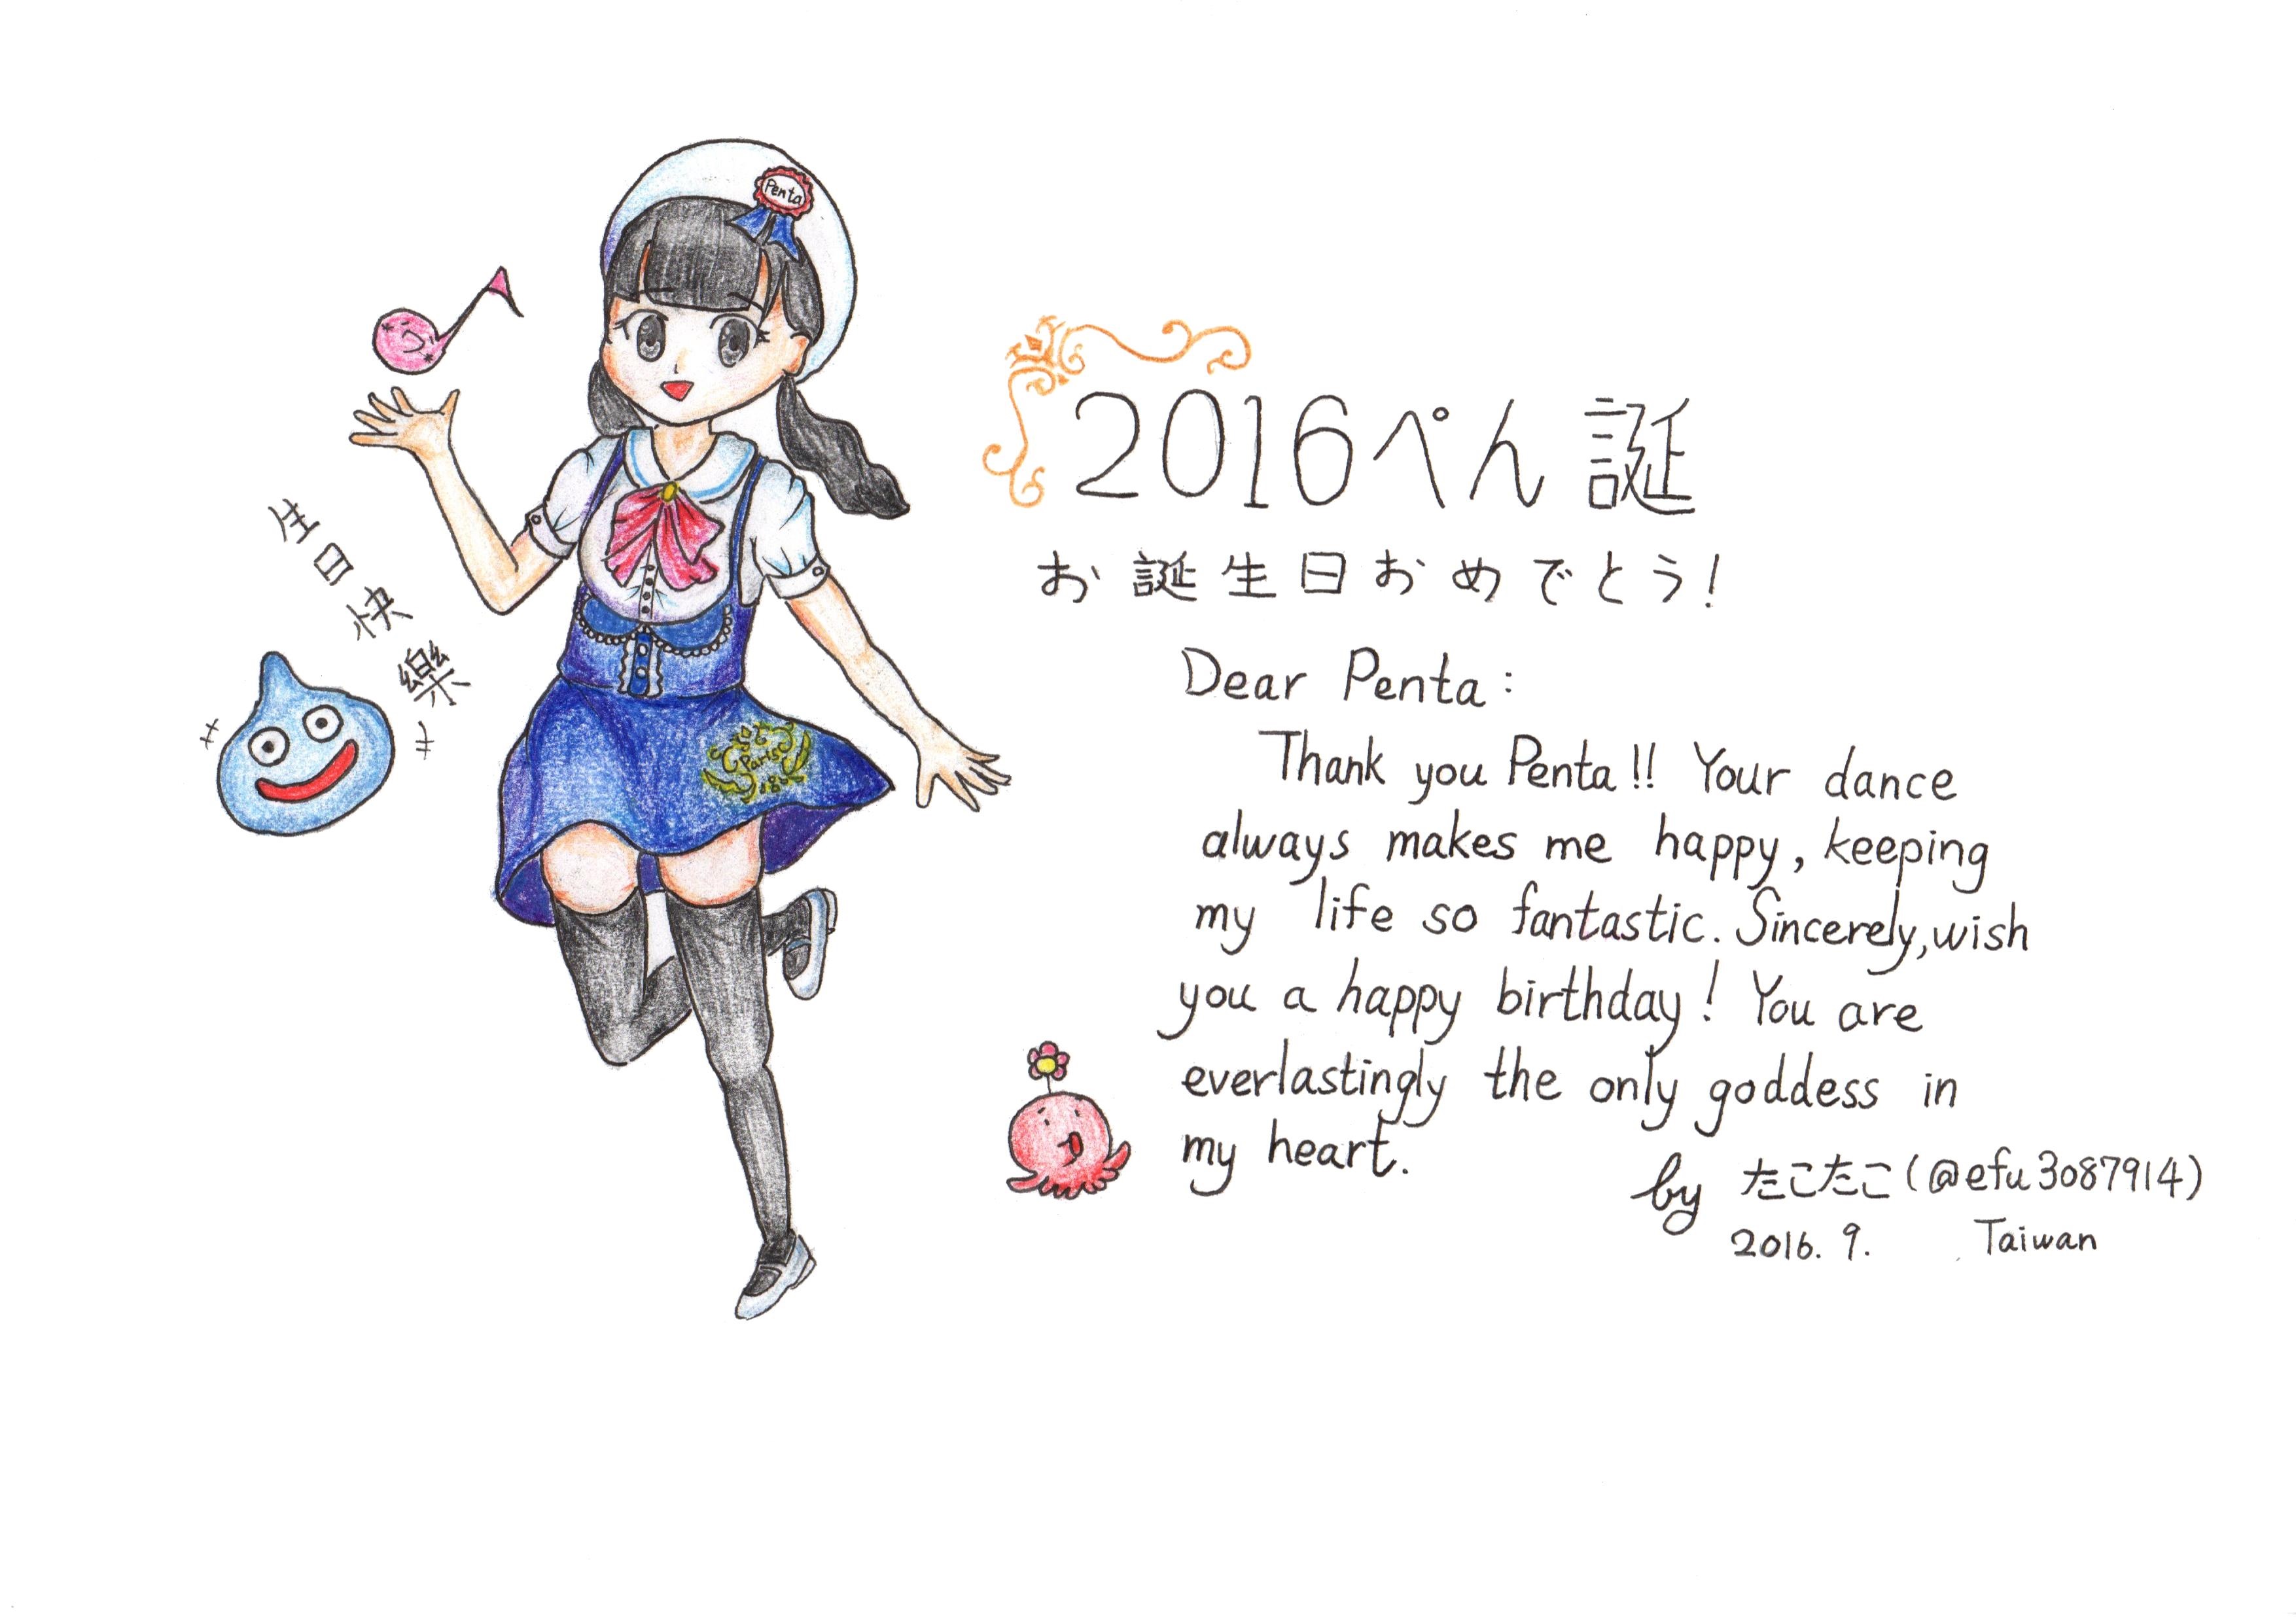 Penta
2016ぺん誕
お誕生日おめでとう!
生日快樂
Dear Penta:
Thank you Penta!! Your dance
always makes me happy, keeping
my life so fantastic. Sincerely, wish
you a happy birthday! You are
everlastingly the only goddess in
my heart.
by たこたこ(@efu3087914)
2016. 9. Taiwan